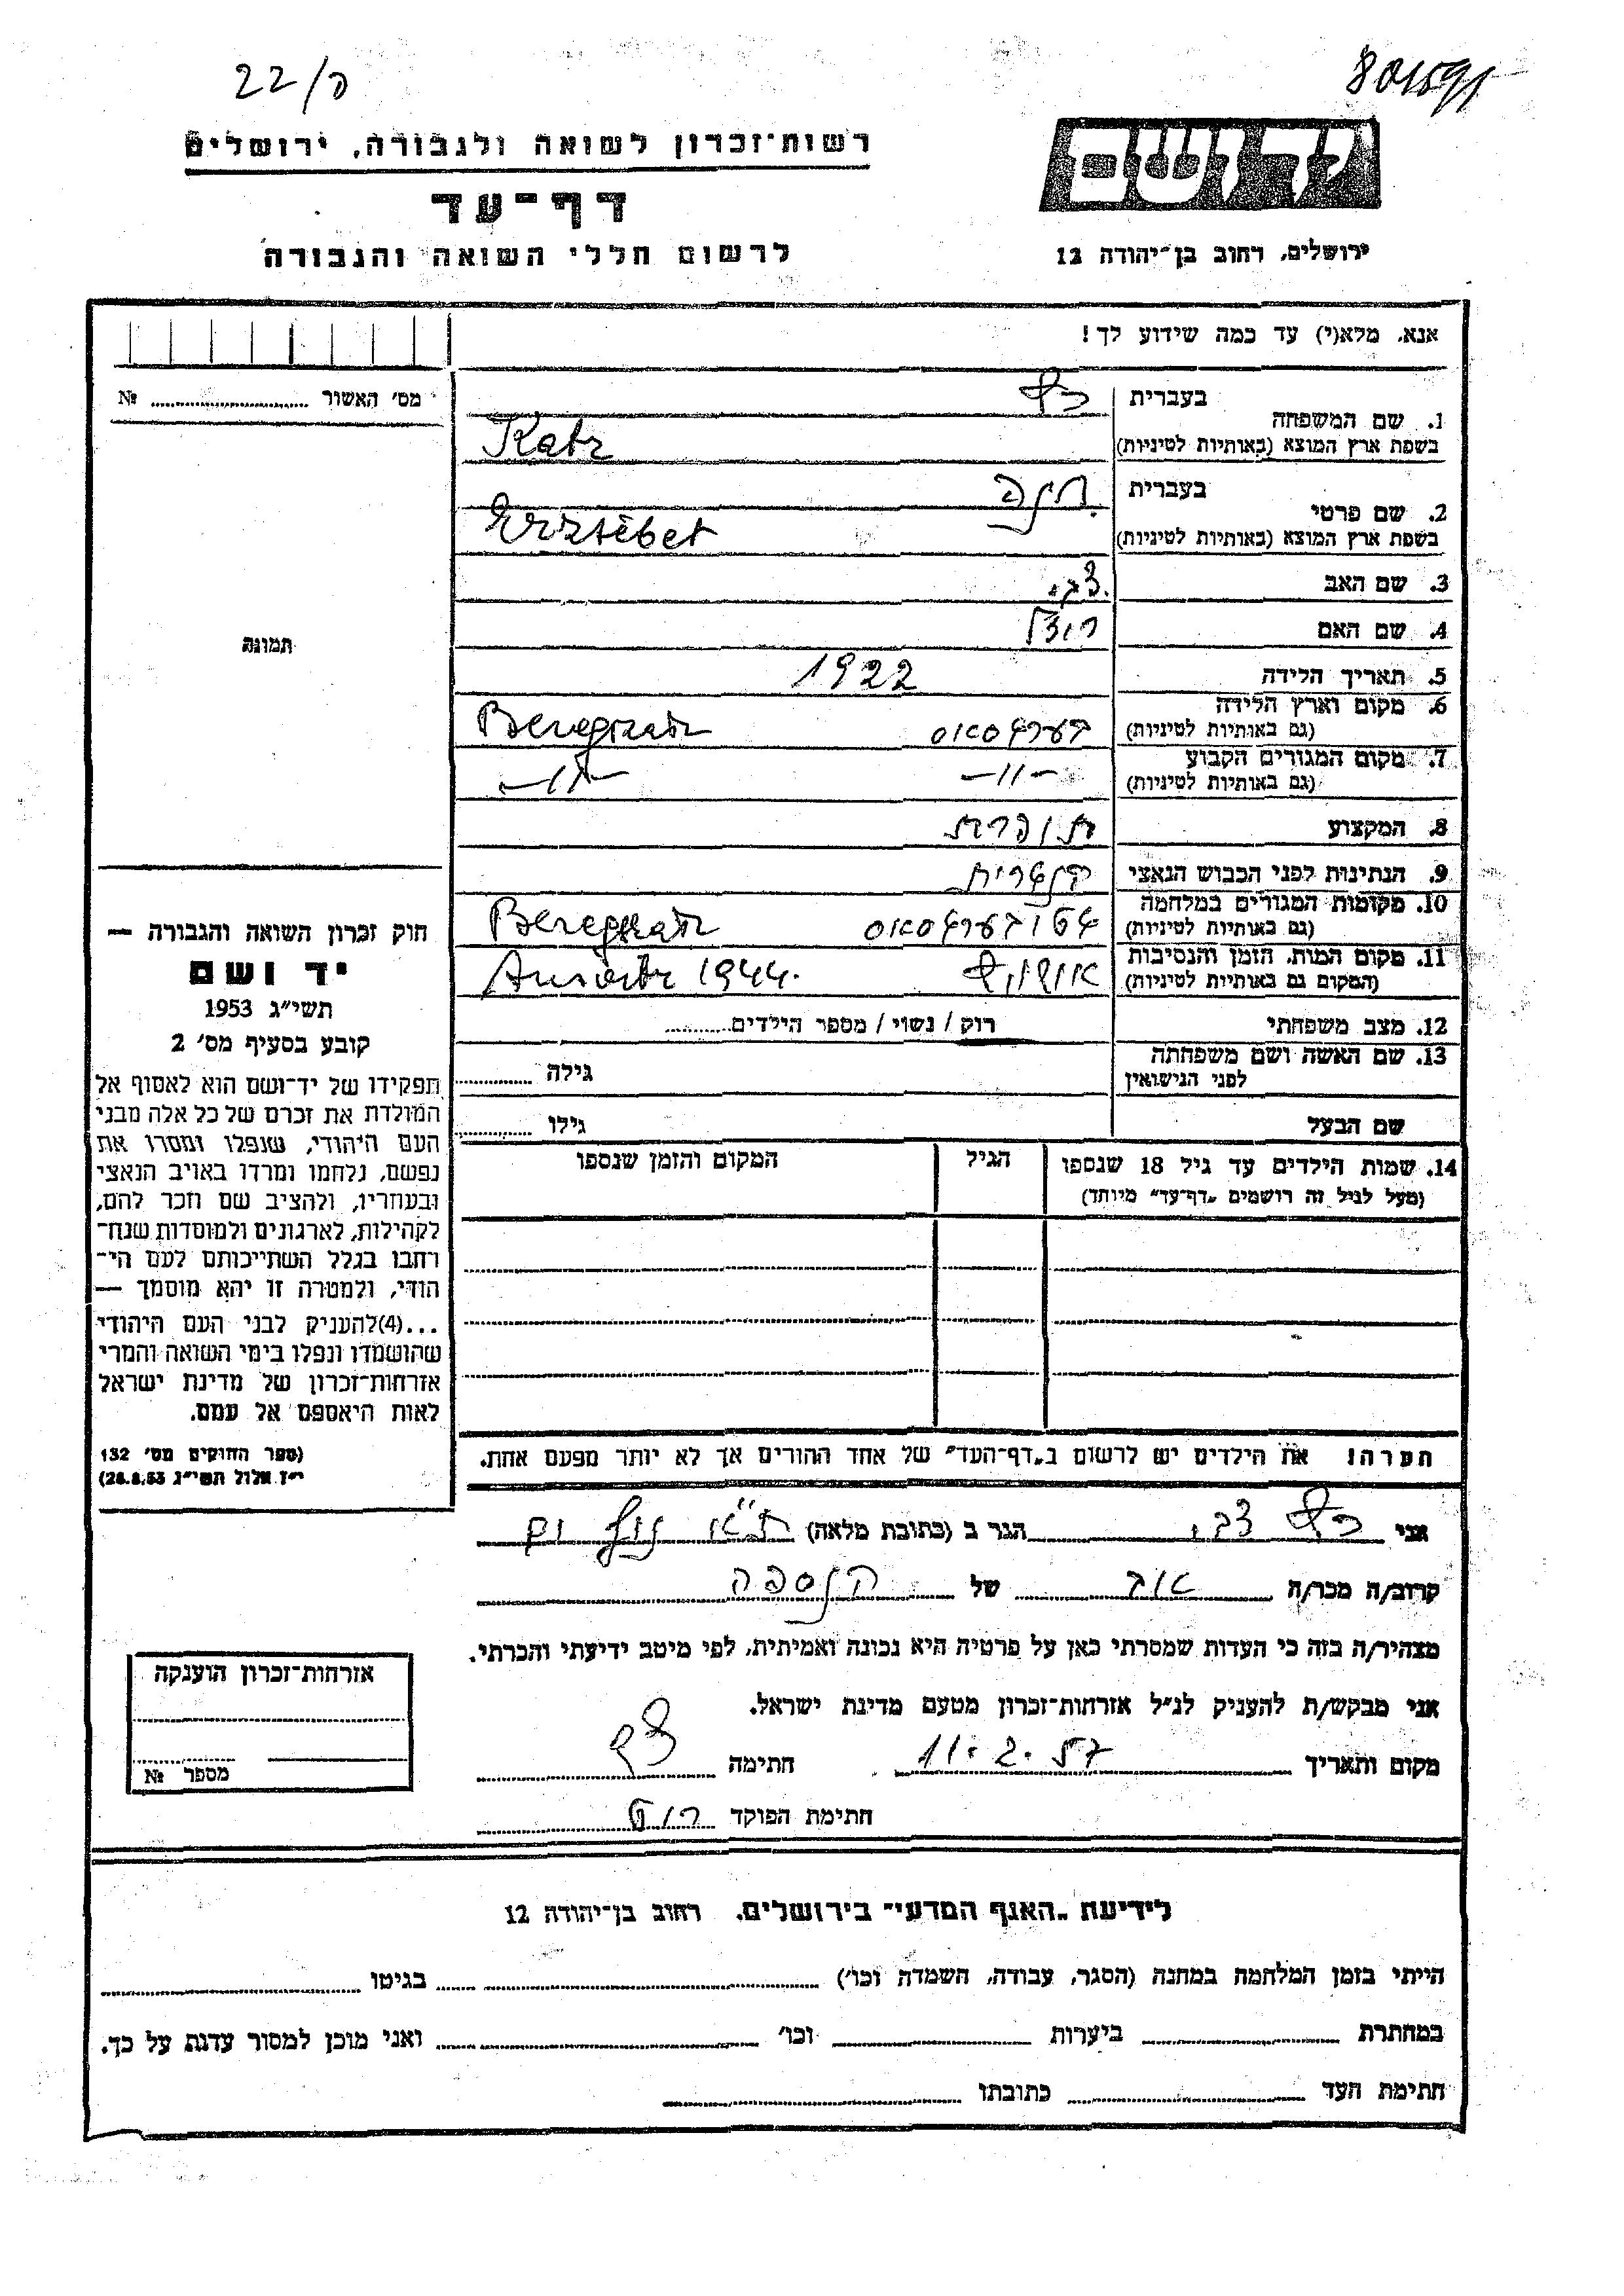 22/ק
801591
רשות־זכרון לשואה ולגבורה, ירושלים
יד ושם
דף־עד
לרשום חללי השואה והגבורה
ירושלים, רחוב בן־יהודה 12
אנא, מלא(י) עד כמה שידוע לך!
מס' האשור № 
בעברית כץ
1. שם המשפחה
בשפת ארץ המוצא (באותיות לטיניות) Katz
בעברית
2. שם פרטי
בשפת ארץ המוצא (באותיות לטיניות) Erzsébet
3. שם האב צבי
4. שם האם רוזל
תמונה
5. תאריך הלידה 1922
6. מקום וארץ הלידה
(גם באותיות לטיניות) בערגסאס Beregszasz
7. מקום המגורים הקבוע
(גם באותיות לטיניות) -״- -״-
8. המקצוע תופרת
9. הנתינות לפני הכבוש הנאצי הונגרית
10. מקומות המגורים במלחמה
(גם באותיות לטיניות) גטו בערגסאס Beregszasz
11. מקום המות, הזמן והנסיבות
(המקום גם באותיות לטיניות) אושויץ Auswitz 1944.
12. מצב משפחתי רוק / נשוי / מספר הילדים
13. שם האשה ושם משפחתה
לפני הנישואין גילה
שם הבעל גילו
14. שמות הילדים עד גיל 18 שנספו הגיל המקום והזמן שנספו
(מעל לגיל זה רושמים „דף־עד” מיוחד)
חוק זכרון השואה והגבורה —
יד ושם
תשי״ג 1953
קובע בסעיף מס' 2
תפקידו של יד־ושם הוא לאסוף אל
המולדת את זכרם של כל אלה מבני
העם היהודי, שנפלו ומסרו את
נפשם, נלחמו ומרדו באויב הנאצי
ובעוזריו, ולהציב שם וזכר להם,
לקהילות, לארגונים ולמוסדות שנח־
רחבו בגלל השתייכותם לעם הי־
הודי, ולמטרה זו יהא מוסמך —
...(4)להעניק לבני העם היהודי
שהושמדו ונפלו בימי השואה והמרי
אזרחות־זכרון של מדינת ישראל
לאות היאספם אל עמם.
(ספר החוקים מס' 132
י״ז אלול תשי״ג 28.8.53)
הערה! את הילדים יש לרשום ב„דף־העד” של אחד ההורים אך לא יותר מפעם אחת.
אני כץ צבי הגר ב (כתובת מלאה) ת״א
קרוב/ה מכר/ה אב של הנספה
מצהיר/ה בזה כי העדות שמסרתי כאן על פרטיה היא נכונה ואמיתית, לפי מיטב ידיעתי והכרתי.
אני מבקש/ת להעניק לנ״ל אזרחות־זכרון מטעם מדינת ישראל.
מקום ותאריך 11.2.57 חתימה
חתימת הפוקד
אזרחות־זכרון הוענקה
מספר №
לידיעת „האגף המדעי” בירושלים, רחוב בן־יהודה 12
הייתי בזמן המלחמה במחנה (הסגר, עבודה, השמדה וכו') בגיטו
במחתרת ביערות וכו' ואני מוכן למסור עדות על כך.
חתימת העד כתובתו